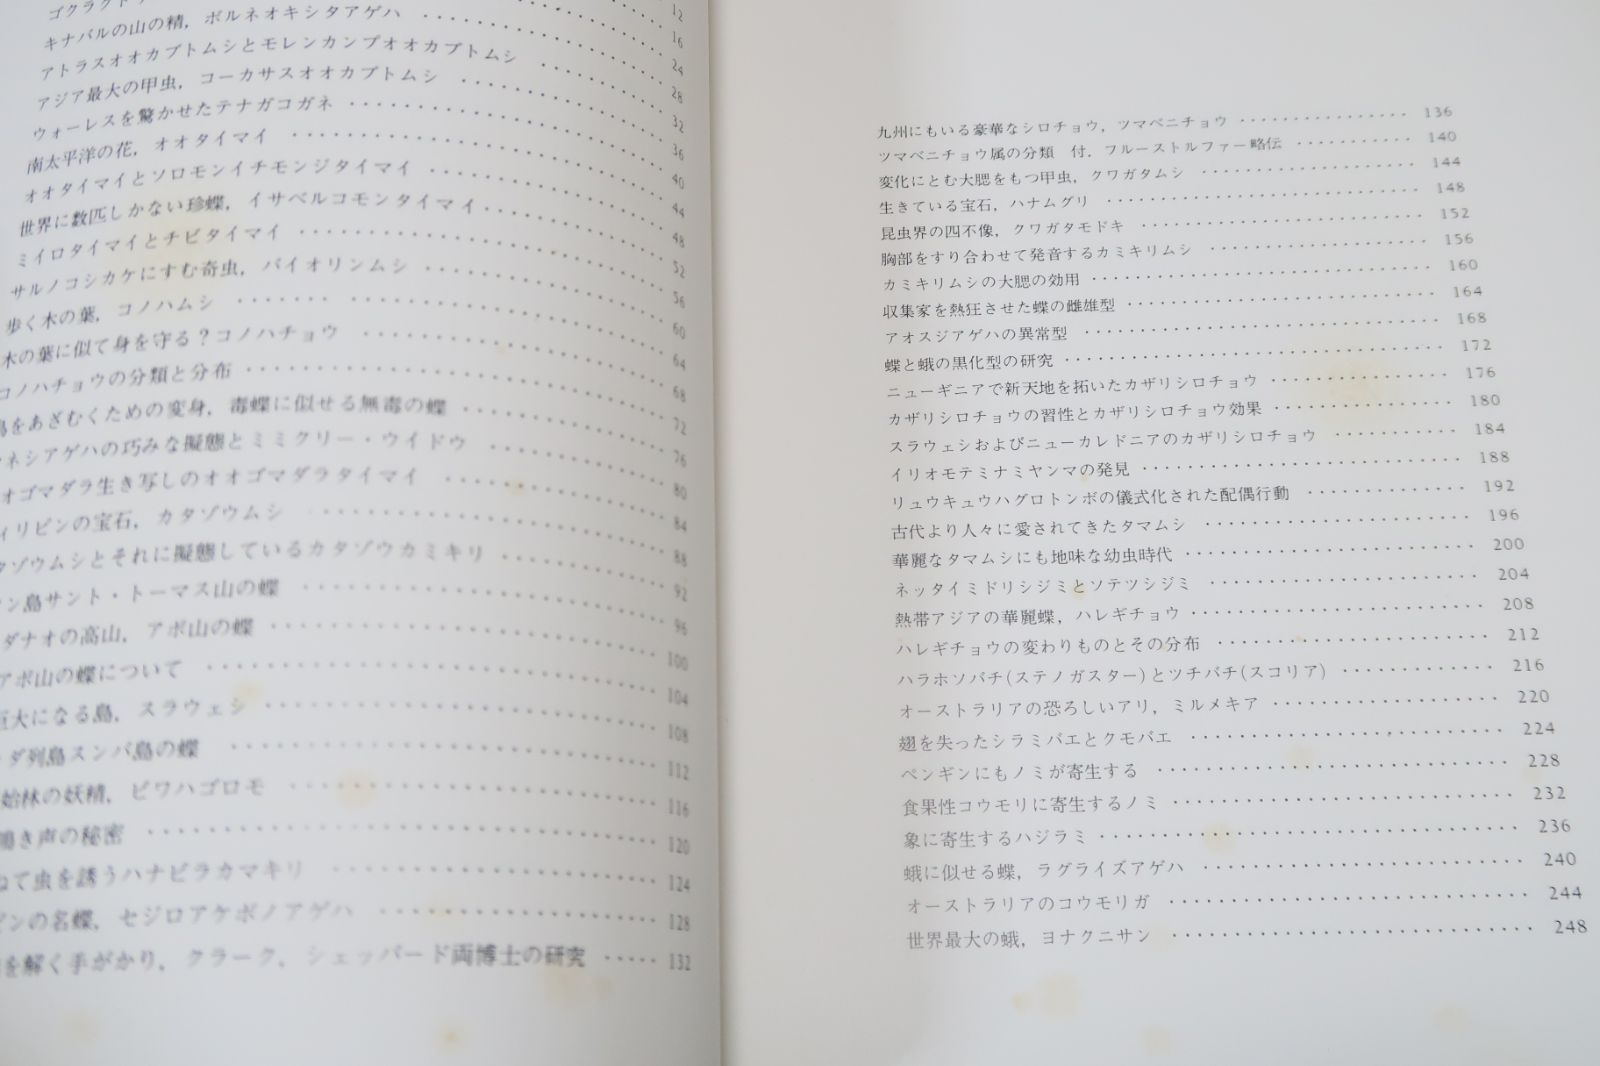 12
キナバルの山の精，ボルネオキシタアゲハ 16
アトラスオオカブトムシとモレンカンプオオカブトムシ 24
アジア最大の甲虫，コーカサスオオカブトムシ 28
ウォーレスを驚かせたテナガコガネ 32
南太平洋の花，オオタイマイ 36
オオタイマイとソロモンイチモンジタイマイ 40
世界に数匹しかない珍蝶，イサベルコモンタイマイ 44
ミイロタイマイとチビタイマイ 48
サルノコシカケにすむ奇虫，バイオリンムシ 52
歩く木の葉，コノハムシ 56
木の葉に似て身を守る？コノハチョウ 60
コノハチョウの分類と分布 64
をあざむくための変身，毒蝶に似せる無毒の蝶 68
ネシアゲハの巧みな擬態とミミクリー・ウイドウ 72
オゴマダラ生き写しのオオゴマダラタイマイ 76
ィリピンの宝石，カタゾウムシ 80
ゾウムシとそれに擬態しているカタゾウカミキリ 84
ン島サント・トーマス山の蝶 88
ダナオの高山，アポ山の蝶 92
アポ山の蝶について 96
巨大になる島，スラウェシ 100
ダ列島スンバ島の蝶 104
始林の妖精，ビワハゴロモ 108
鳴き声の秘密 112
ねて虫を誘うハナビラカマキリ 116
ピンの名蝶，セジロアケボノアゲハ 120
を解く手がかり，クラーク，シェッパード両博士の研究 124
128
132
九州にもいる豪華なシロチョウ，ツマベニチョウ 136
ツマベニチョウ属の分類　付，フルーストルファー略伝 140
変化にとむ大腮をもつ甲虫，クワガタムシ 144
生きている宝石，ハナムグリ 148
昆虫界の四不像，クワガタモドキ 152
胸部をすり合わせて発音するカミキリムシ 156
カミキリムシの大腮の効用 160
収集家を熱狂させた蝶の雌雄型 164
アオスジアゲハの異常型 168
蝶と蛾の黒化型の研究 172
ニューギニアで新天地を拓いたカザリシロチョウ 176
カザリシロチョウの習性とカザリシロチョウ効果 180
スラウェシおよびニューカレドニアのカザリシロチョウ 184
イリオモテミナミヤンマの発見 188
リュウキュウハグロトンボの儀式化された配偶行動 192
古代より人々に愛されてきたタマムシ 196
華麗なタマムシにも地味な幼虫時代 200
ネッタイミドリシジミとソテツシジミ 204
熱帯アジアの華麗蝶，ハレギチョウ 208
ハレギチョウの変わりものとその分布 212
ハラホソバチ(ステノガスター)とツチバチ(スコリア) 216
オーストラリアの恐ろしいアリ，ミルメキア 220
翅を失ったシラミバエとクモバエ 224
ペンギンにもノミが寄生する 228
食果性コウモリに寄生するノミ 232
象に寄生するハジラミ 236
蛾に似せる蝶，ラグライズアゲハ 240
オーストラリアのコウモリガ 244
世界最大の蛾，ヨナクニサン 248